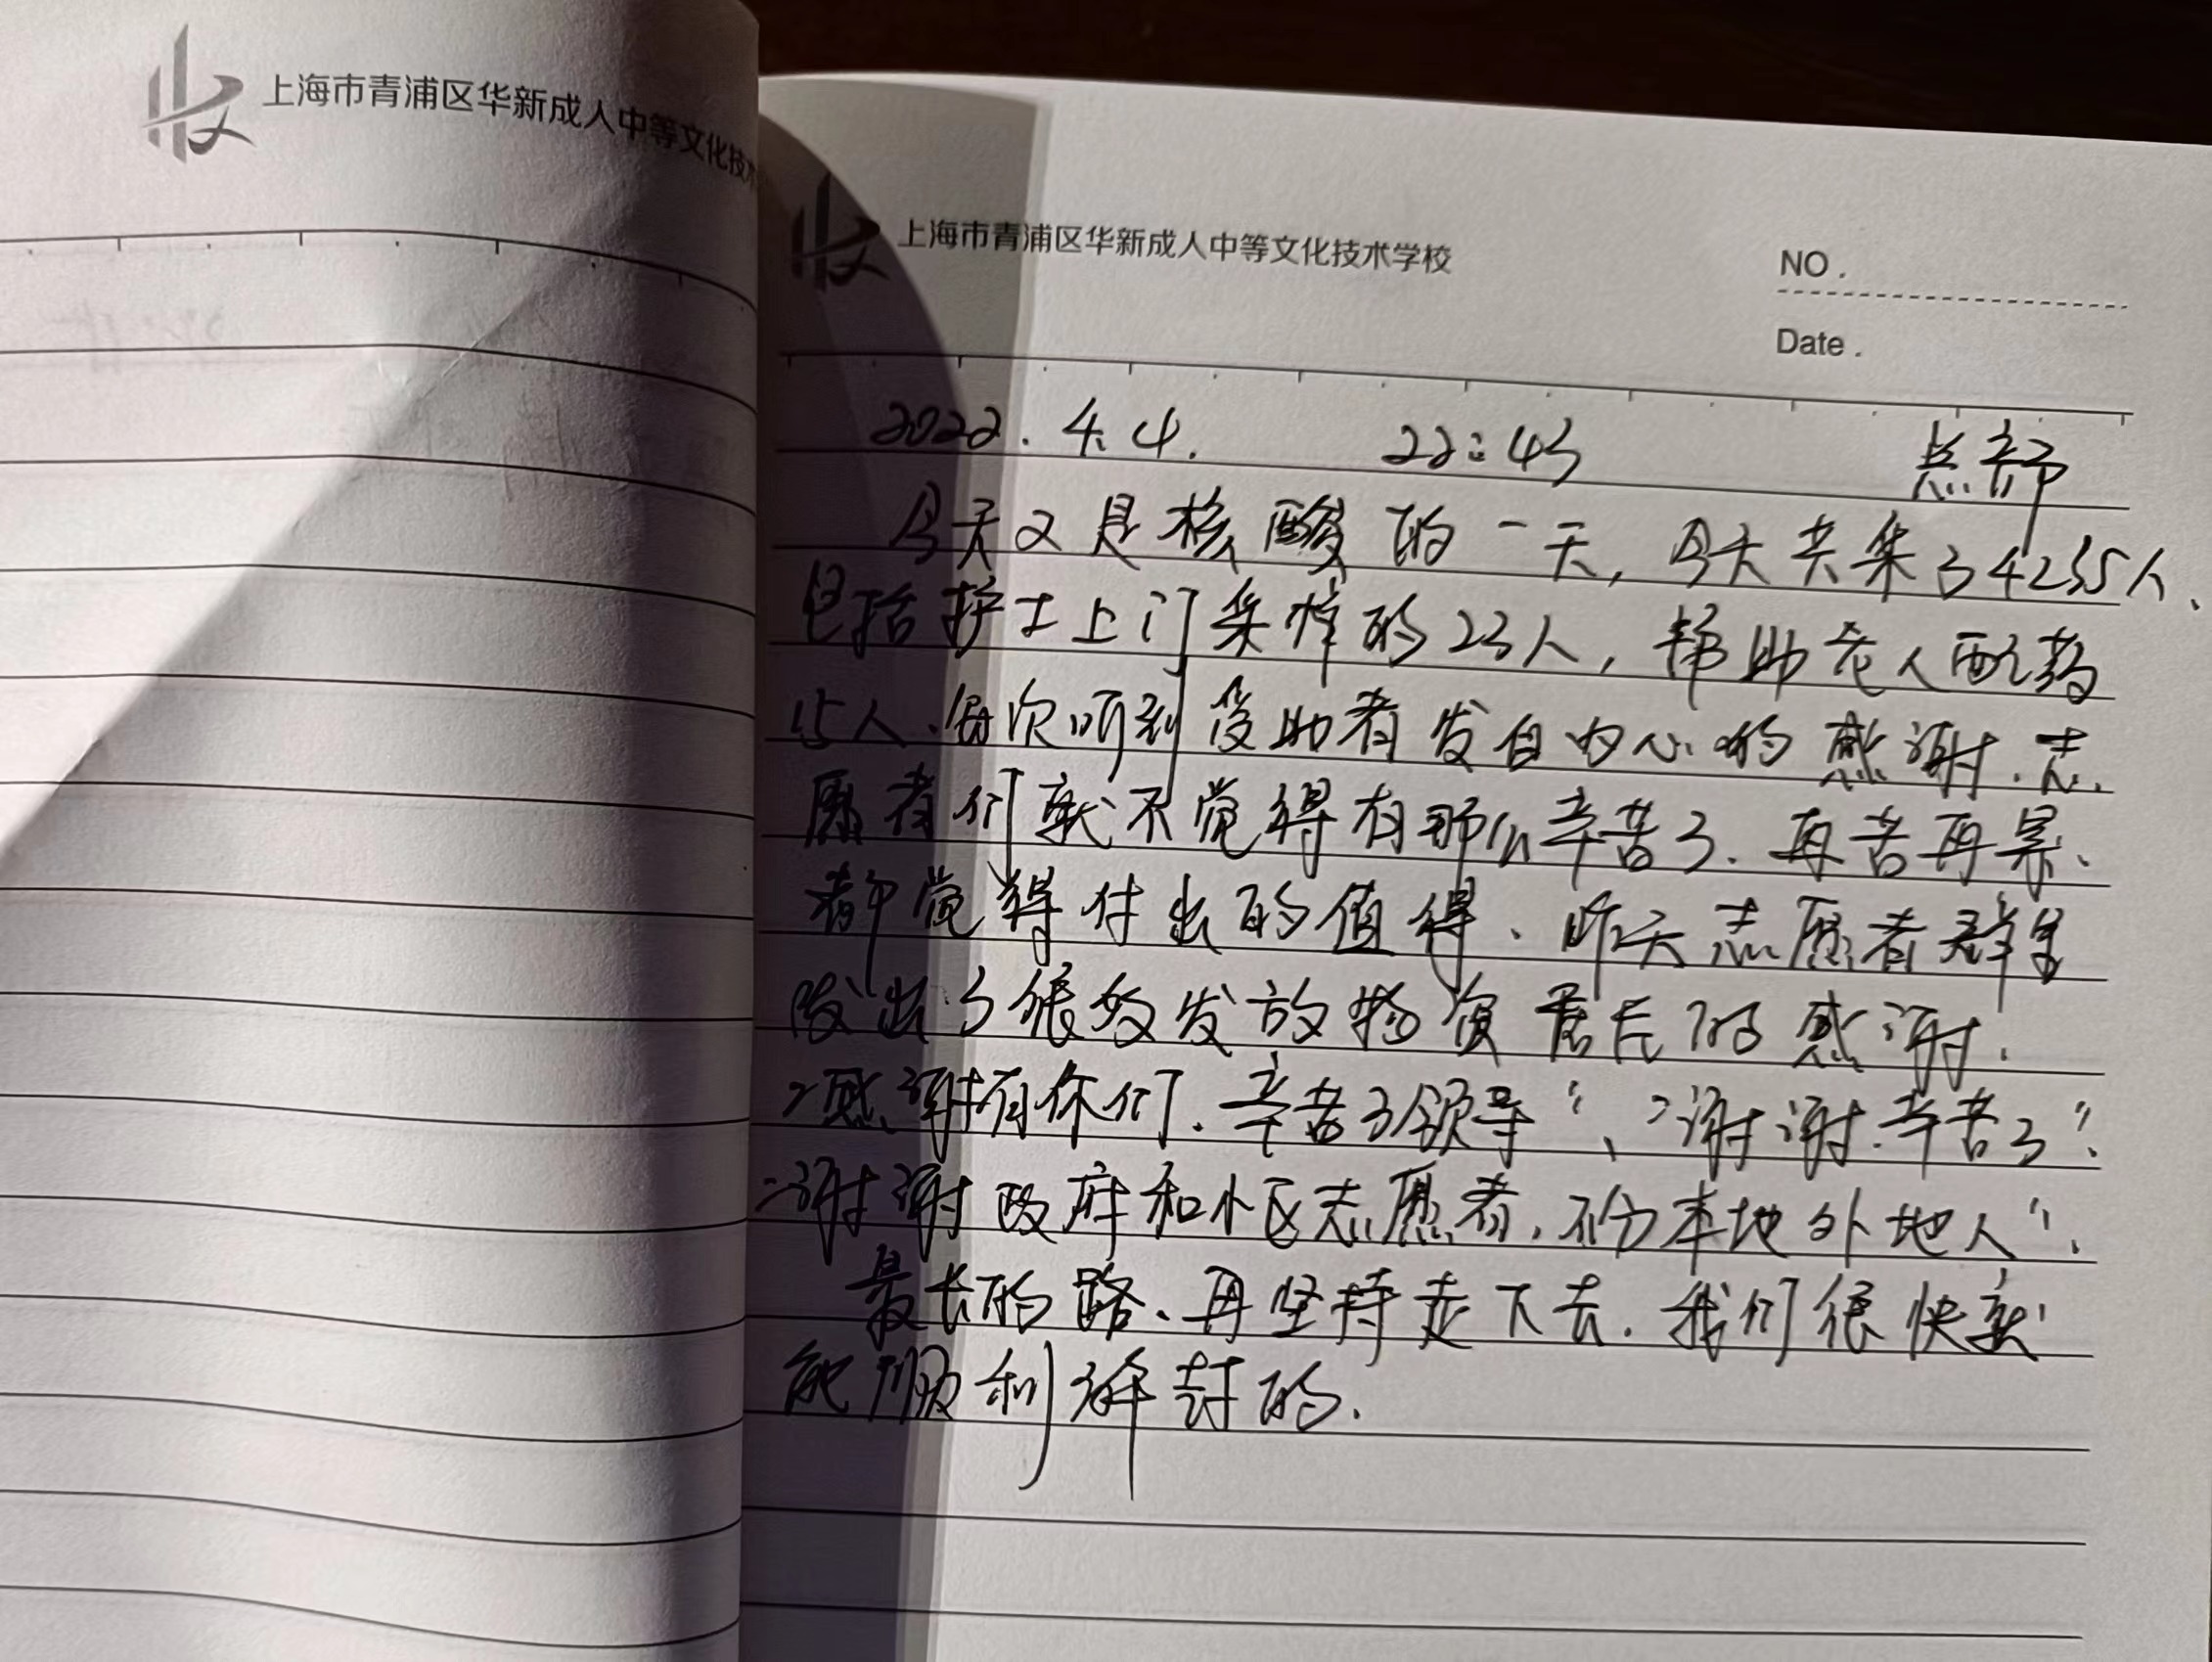 上海市青浦区华新成人中等文化技术
上海市青浦区华新成人中等文化技术学校
NO.
Date.
2022.4.4. 22:43 总部
今天又是核酸的一天,今天共采了4235人、
包括护士上门采样的23人,帮助老人配药
15人.每次听到受助者发自内心的感谢.志
愿者们就不觉得有那么辛苦了.再苦再累、
都觉得付出的值得、昨天志愿者群里
发出了很多发放物资居民的感谢.
“感谢有你们.辛苦了领导”、“谢谢.辛苦了”.
“谢谢政府和小区志愿者,不分本地外地人”.
最长的路、再坚持走下去.我们很快就
能顺利解封的.